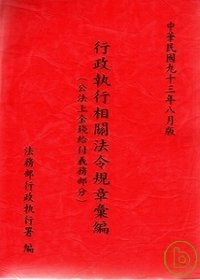 中華民國九十三年八月版
行政執行相關法令規章彙編
（公法上金錢給付義務部分）
法務部行政執行署 編